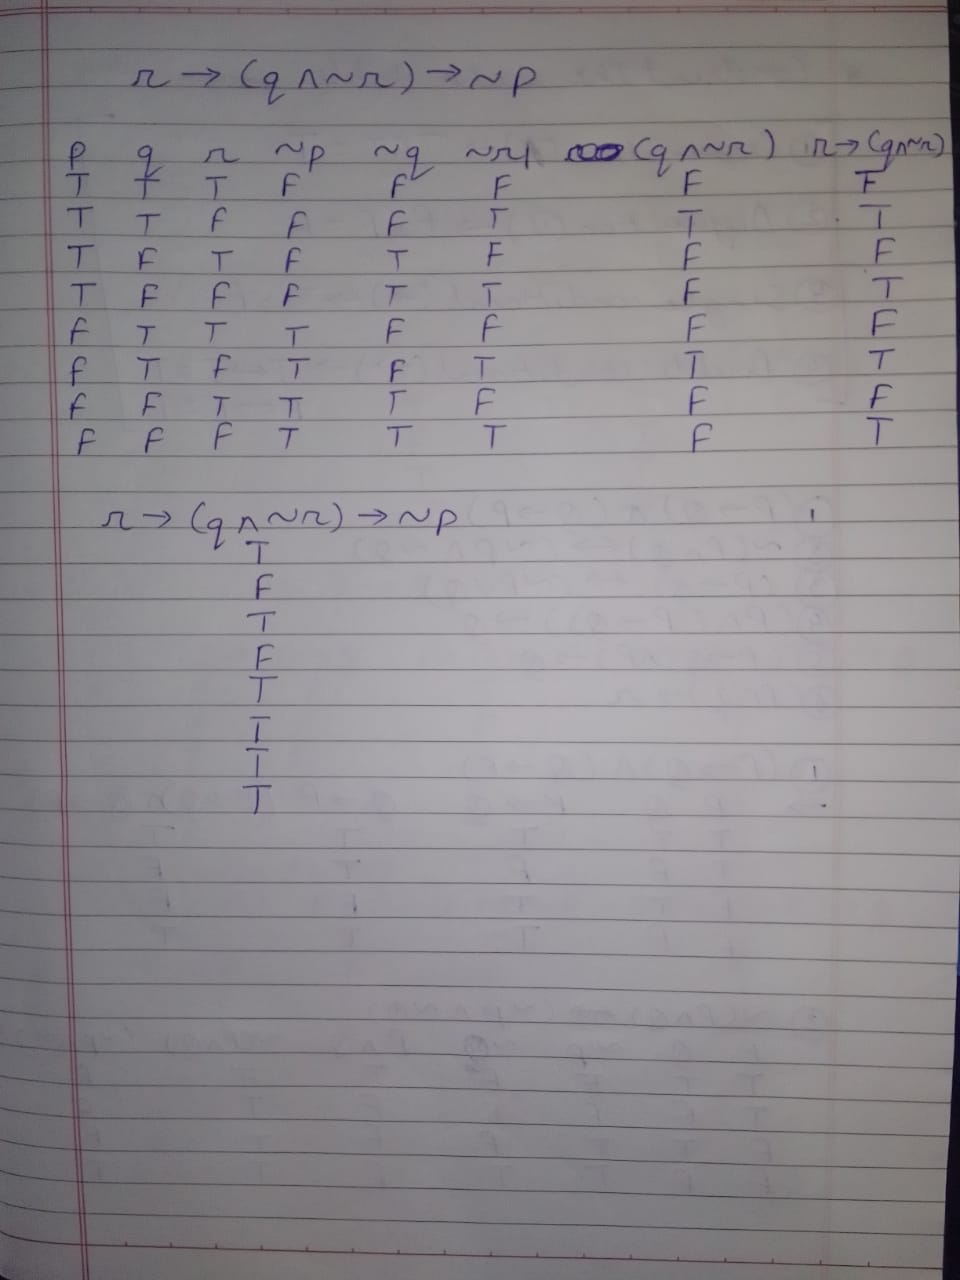 r → (q ∧ ~r) → ~p
p q r ~p ~q ~r (q ∧ ~r) r → (q ∧ ~r)
T T T F F F F F
T T F F F T T T
T F T F T F F F
T F F F T T F T
F T T T F F F F
F T F T F T T T
F F T T T F F F
F F F T T T F T
r → (q ∧ ~r) → ~p
T
F
T
F
T
T
T
T